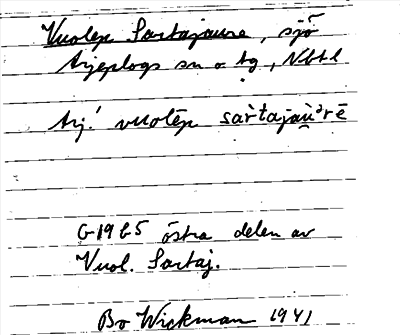 Vuolep Sartajaure, sjö
Arjeplogs sn o tg, Nbtl
Arj. vuolēp sar̀tajau̯ᵊrē
G 19 b5 östra delen av
Vuol. Sartaj.
Bo Wickman 1941